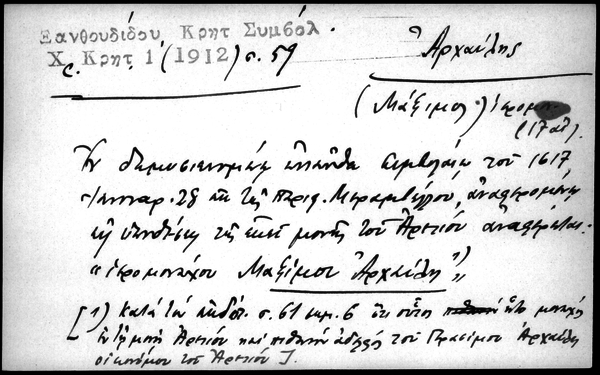 Ξανθουδίδου Κρητ Συμβόλ.
Χ. Κρητ 1 (1912) σ. 59
Ἀρχαύλης
(Μάξιμος) ἱερομ
(17 αἰ).
Ἐν δημοσιευομένῳ ἐνταῦθα συμβολαίῳ τοῦ 1617
Ἰανουαρ. 28 ἐκ τῆς περιφ. Μεραμβέλλου, ἀναφερομένῳ
εἰς ὑποθέσεις τῆς ἐκεῖ μονῆς τοῦ Ἀρετίου ἀναφέρεται
"ἱερομονάχου Μαξίμου Ἀρχαύλη" 1)
[1) κατὰ τὸν ἐκδότ. σ. 61 σημ. 6 οὗτος ἦτο μοναχὸς
ἐν τῇ μονῇ Ἀρετίου καὶ πιθανῶς ἀδελφὸς τοῦ Γερασίμου Ἀρχαύλη
οἰκονόμου τοῦ Ἀρετίου].